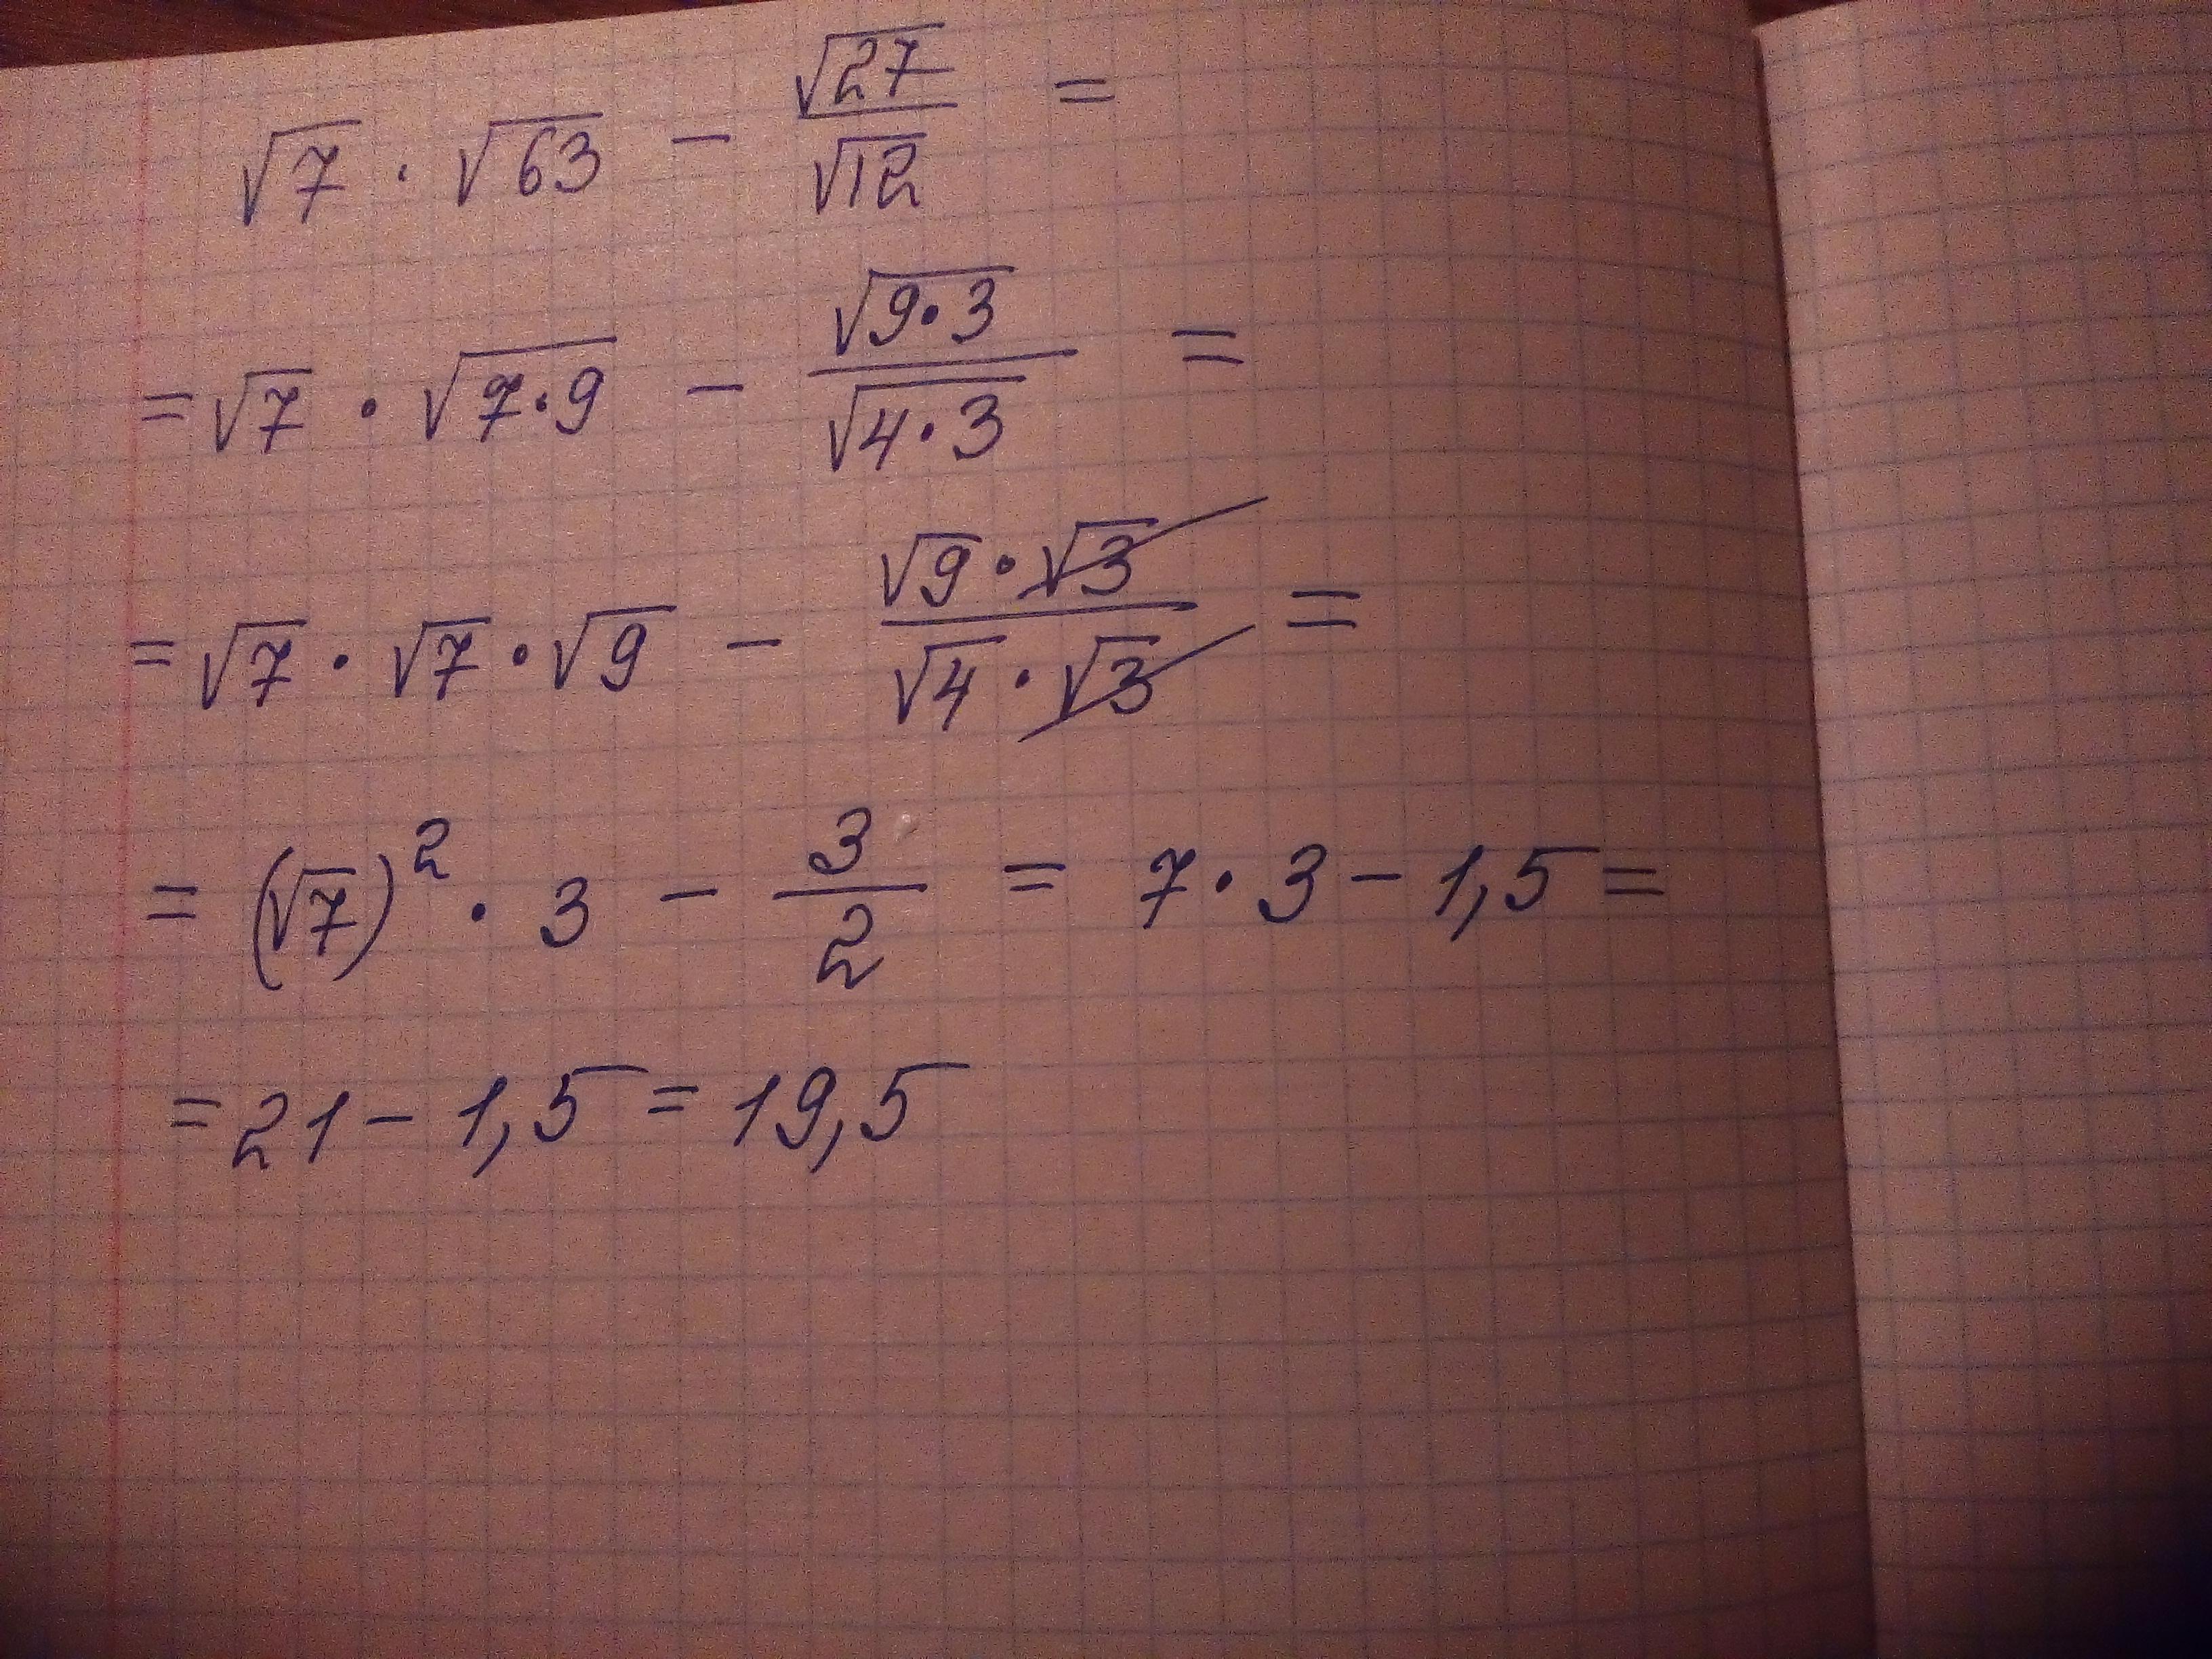 √7 · √63 − √27/√12 =
= √7 · √(7·9) − √(9·3)/√(4·3) =
= √7 · √7 · √9 − (√9 · √3)/(√4 · √3) =
= (√7)² · 3 − 3/2 = 7 · 3 − 1,5 =
= 21 − 1,5 = 19,5